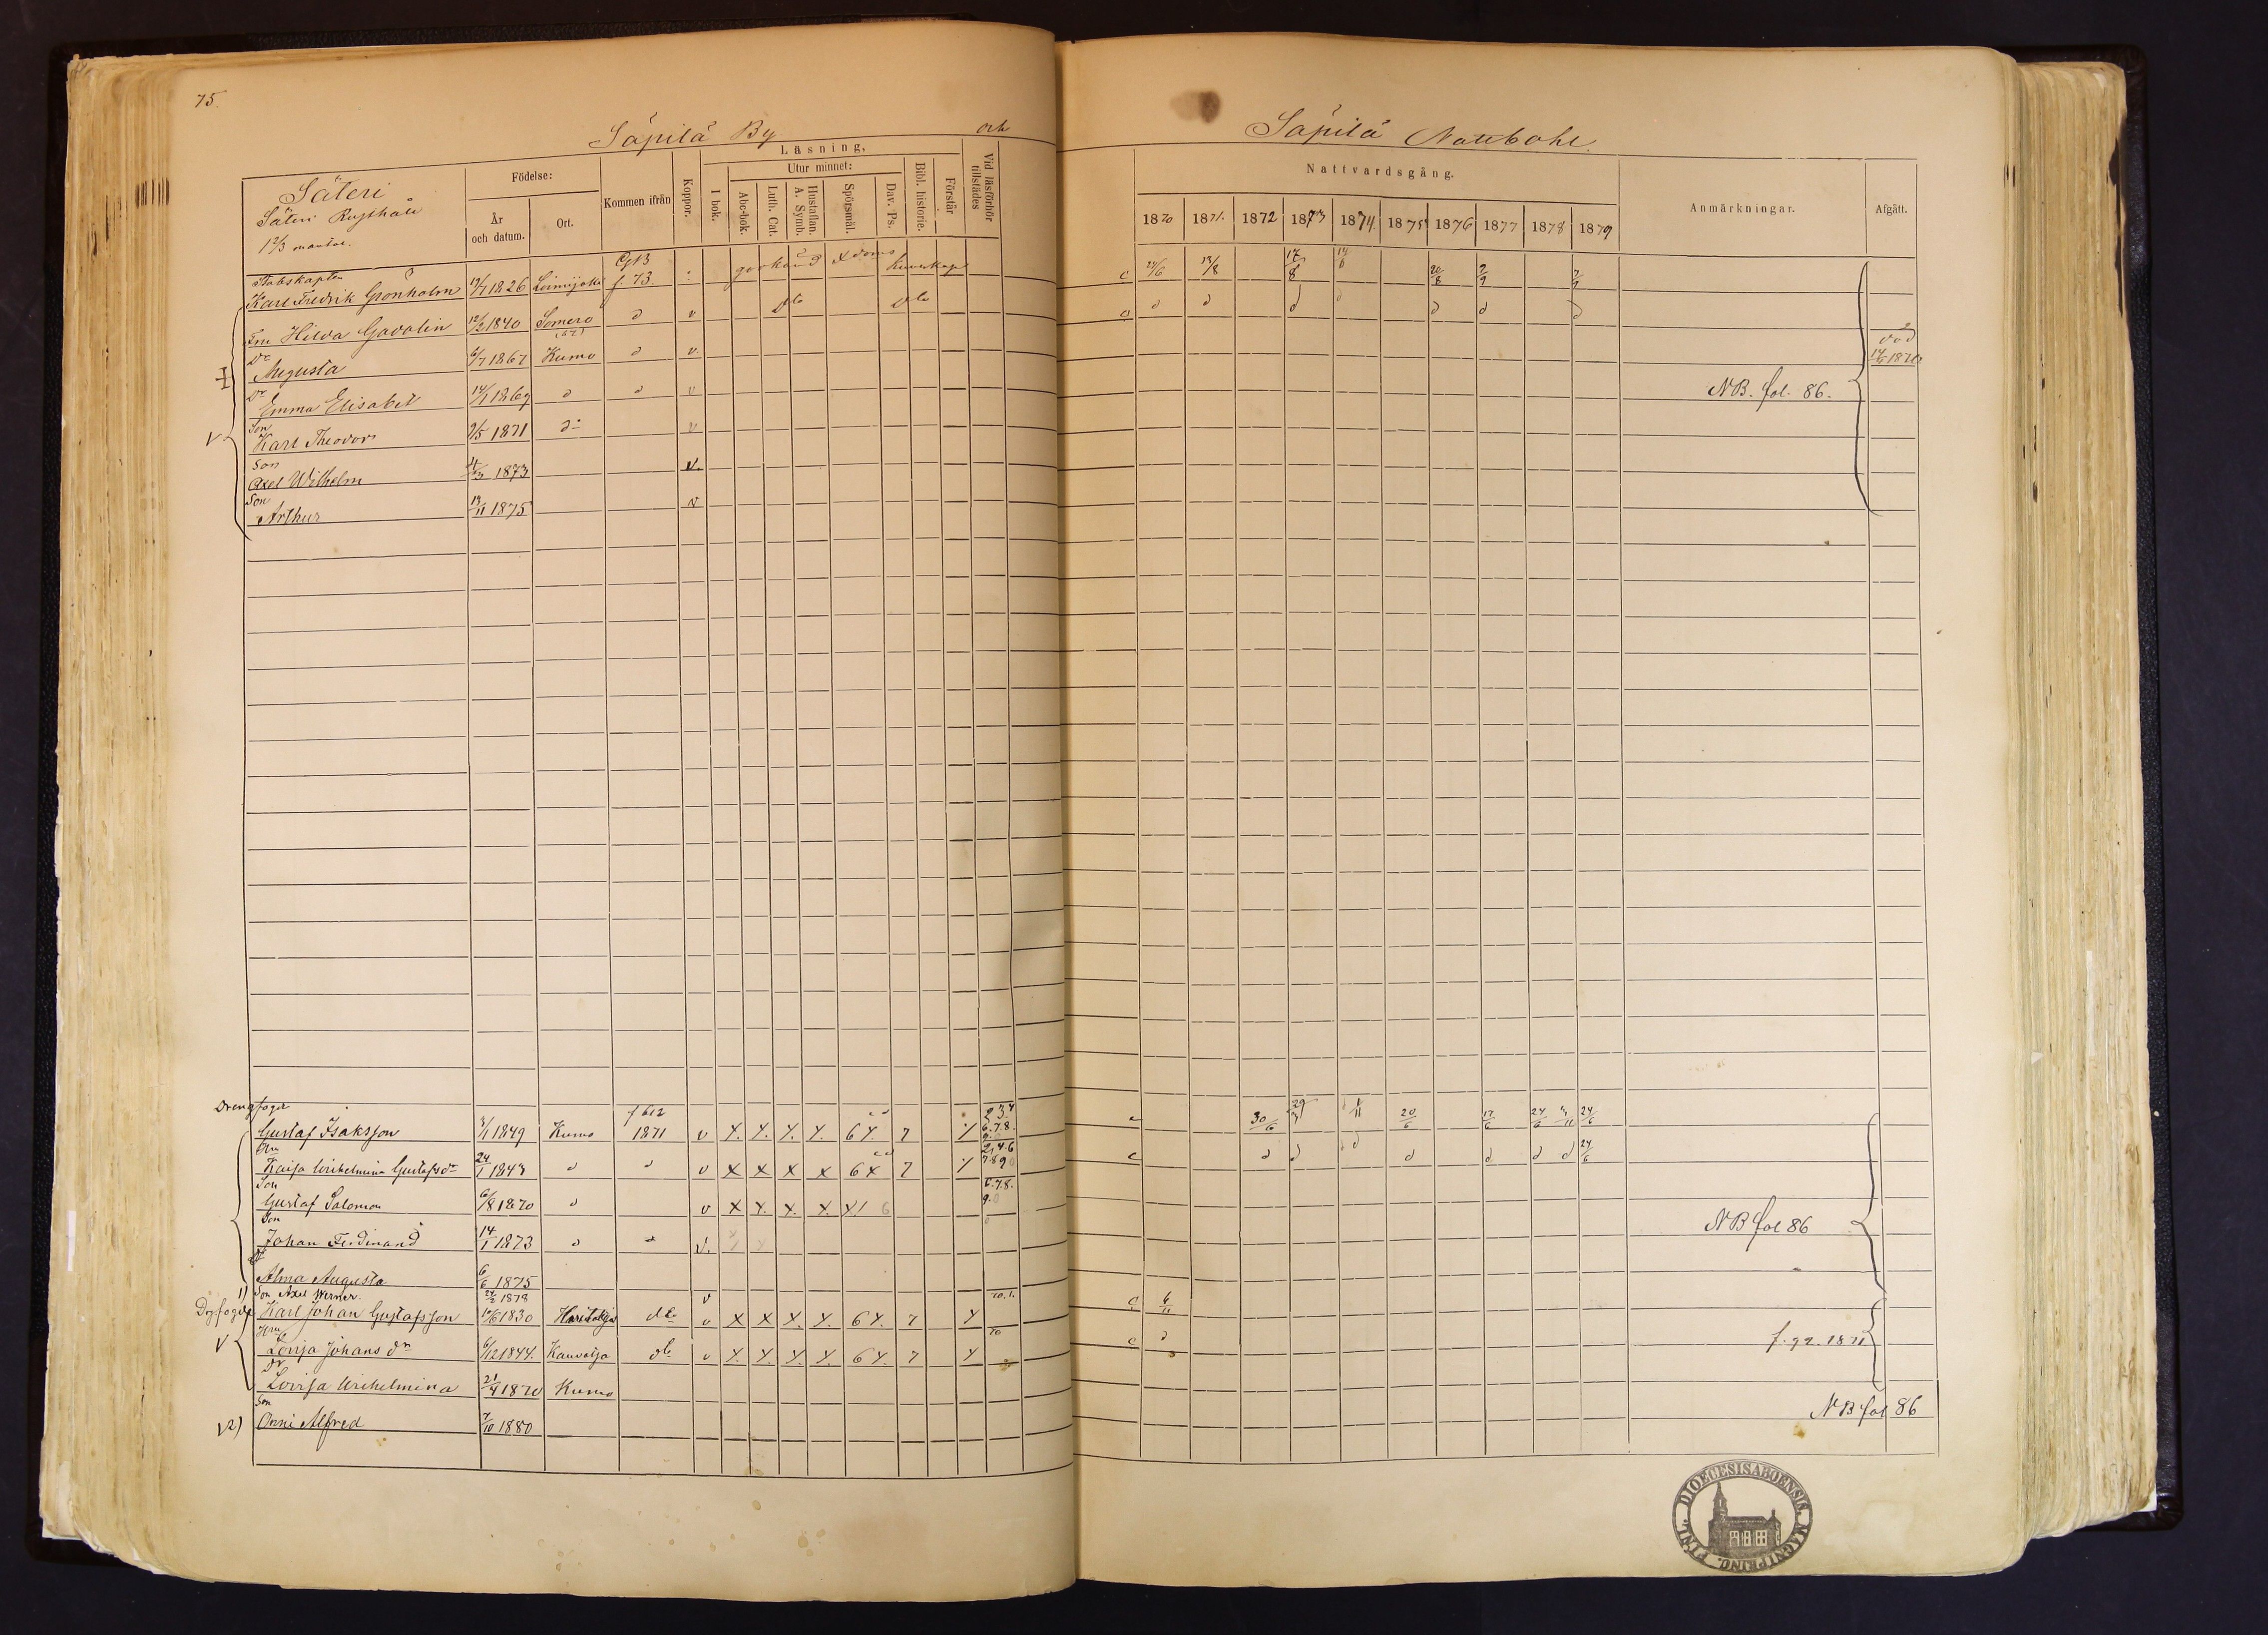 75.
Säpilä By och Säpilä Nattbohl.
Säteri
Säteri Rusthåll
1 2/3 mantal.
Födelse: År och datum. Ort. Kommen ifrån Koppor. Läsning, I bok. Utur minnet: Abc-bok. Luth. Cat. Hustaflan. A. Symb. Spörsmål. Dav. Ps. Bibl. historie. Förstår Vid läsförhör tillstädes
Nattvardsgång. 1870 1871. 1872 1873 1874. 1875 1876 1877 1878 1879 Anmärkningar. Afgått.
Stabskapten
Karl Fredrik Grönholm 19/7 1826 Loimijoki f. 73 godkänd kunskap c 24/6 13/8 17/8 14/6 20/8 2/9 7/9
Fru Hilda Gadolin 12/2 1840 Somero d v Dto Dto d d d d d d d
Dr Augusta 6/7 1867 Kumo d v. död 14/5 1870
Dr Emma Elisabet 14/1 1869 d d v NB. fol. 86.
Son Karl Theodor 9/5 1871 d:o v
Son Axel Wilhelm 4/3 1873 v.
Son Arthur 13/11 1875 v
Drengfogde f 612 2 3.4
Gustaf Isaksson 3/1 1849 Kumo 1871 v 6 7 6.7.8. 30/6 20/6 17/6 24/6 24/6
Hu Kaija Wilhelmina Gustafsdr 24/1 1843 d d v x x x x 6 x 7 7.8 9 c d d d d d d d 24/6
Son Gustaf Salomon 6/8 1870 d v 6.7.8. 9.
Son Johan Ferdinand 14/1 1873 d v. NB fol 86
Dr Alma Augusta 6/6 1875
1) Son Axel Werner. 24/2 1878 v
Karl Johan Gustafsson 12/6 1830 dto v x x 6 7 70.1. c 6/11
Hu Lovisa Johans dr 6/12 1844. Kauvatsa dto v 6 7 70 c d f. 92. 1871
Dr Lovisa Wilhelmina 21/4 1870 Kumo
v2) Son Onni Alfred 7/10 1880 NB fol 86
DIOECESIS ABOENSIS. MAGNI PRINC. FINL.